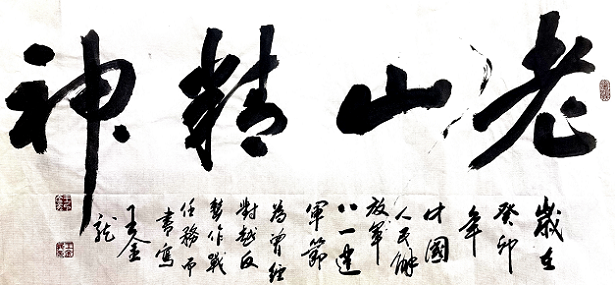 老山精神
歲在
癸卯
年
中國
人民解
放軍
八一建
軍節
為曾經
對越反
擊作戰
任務而
書寫
王金
龍